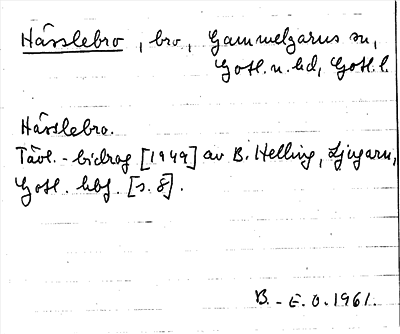 Hässlebro, bro, Gammelgarns sn,
Gotl. n. hd, Gotl. l.
Hässlebro.
Tävl.-bidrag [1949] av B. Helling, Ljugarn,
Gotl. hbf. [s. 8].
B.-E.O. 1961.